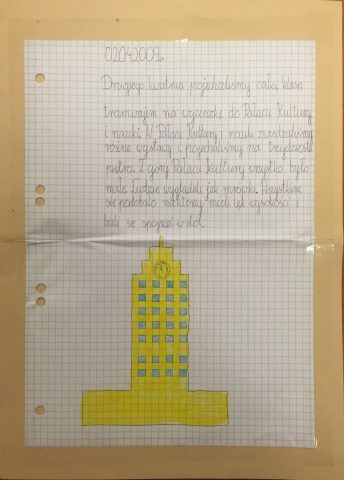 02.04.2009r.
Drugiego kwietnia pojechaliśmy całą klasą
tramwajem na wycieczkę do Pałacu Kultury
i nauki. W Pałacu Kultury i nauki zwiedzaliśmy
różne wystawy i pojechaliśmy na trzydzieste
piętro. Z góry Pałacu Kultury wszystko było
małe. Ludzie wyglądali jak mrówki. Wszystkim
się podobało niektórzy mieli lęk wysokości i
bali się spojrzeć w dół.